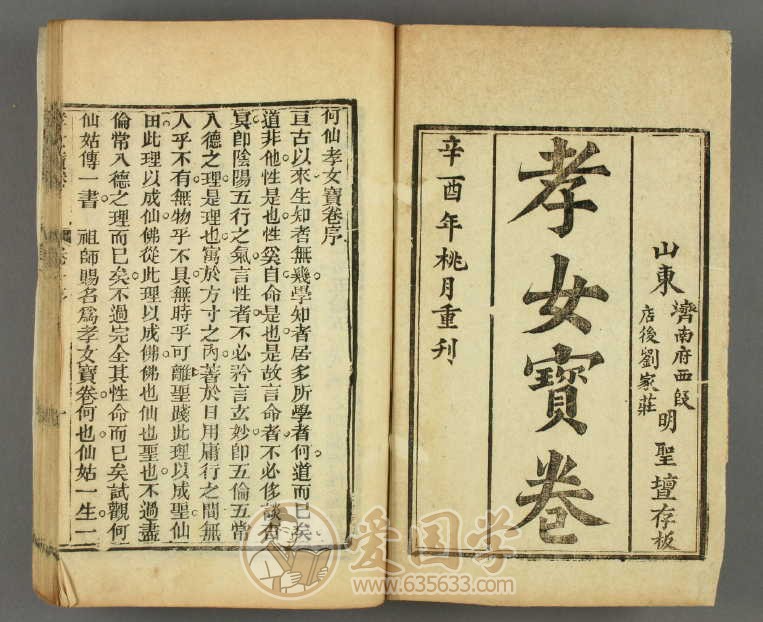 山東
濟南府西段
店後劉家莊
明聖壇存板
孝女寶卷
辛酉年桃月重刋
何仙孝女寶卷序
亘古以來生知者無幾學知者居多所學者何道而已矣
道非他性是也性奚自命是也是故言命者不必侈談杳
冥卽陰陽五行之氣言性者不必矜言玄妙卽五倫五常
入德之理是理也寓於方寸之內著於日用庸行之間無
人乎不有無物乎不具無時乎可離聖踐此理以成聖仙
由此理以成仙佛從此理以成佛佛也仙也聖也不過盡
倫常入德之理而已矣不過完全其性命而已矣試觀何
仙姑傳一書 祖師賜名爲孝女寶卷何也仙姑一生一
爱国学
www.635633.com